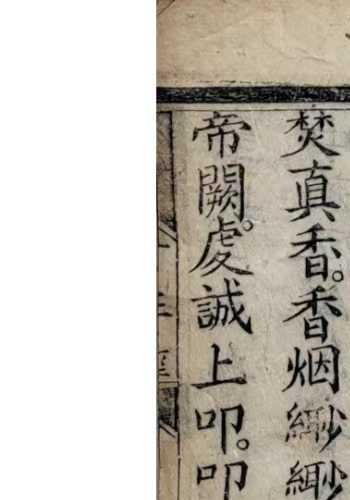 焚真香。香烟緲緲
帝闕。虔誠上叩。叩